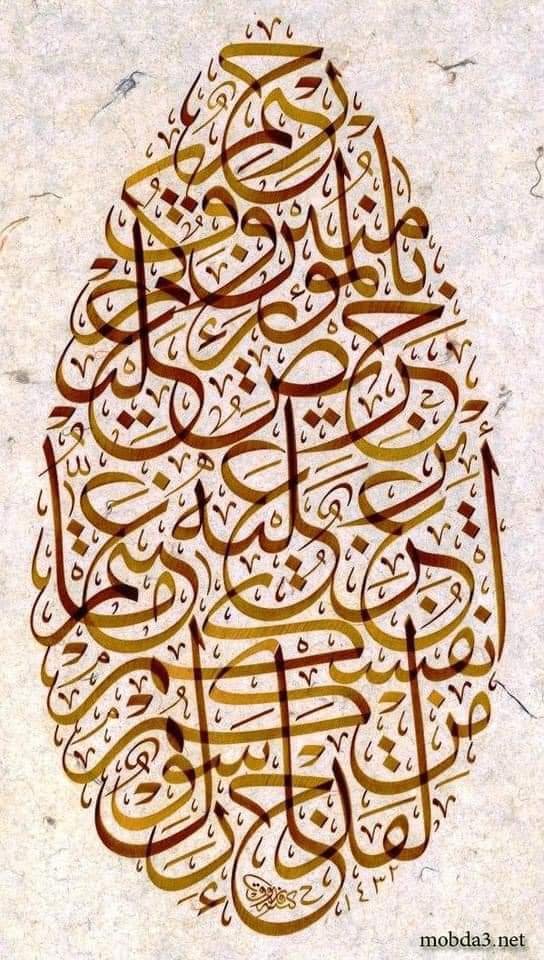 لقد جاءكم رسول
من أنفسكم
عزيز عليه ما عنتم
حريص عليكم
بالمؤمنين رءوف
رحيم
١٤٣٢
mobda3.net